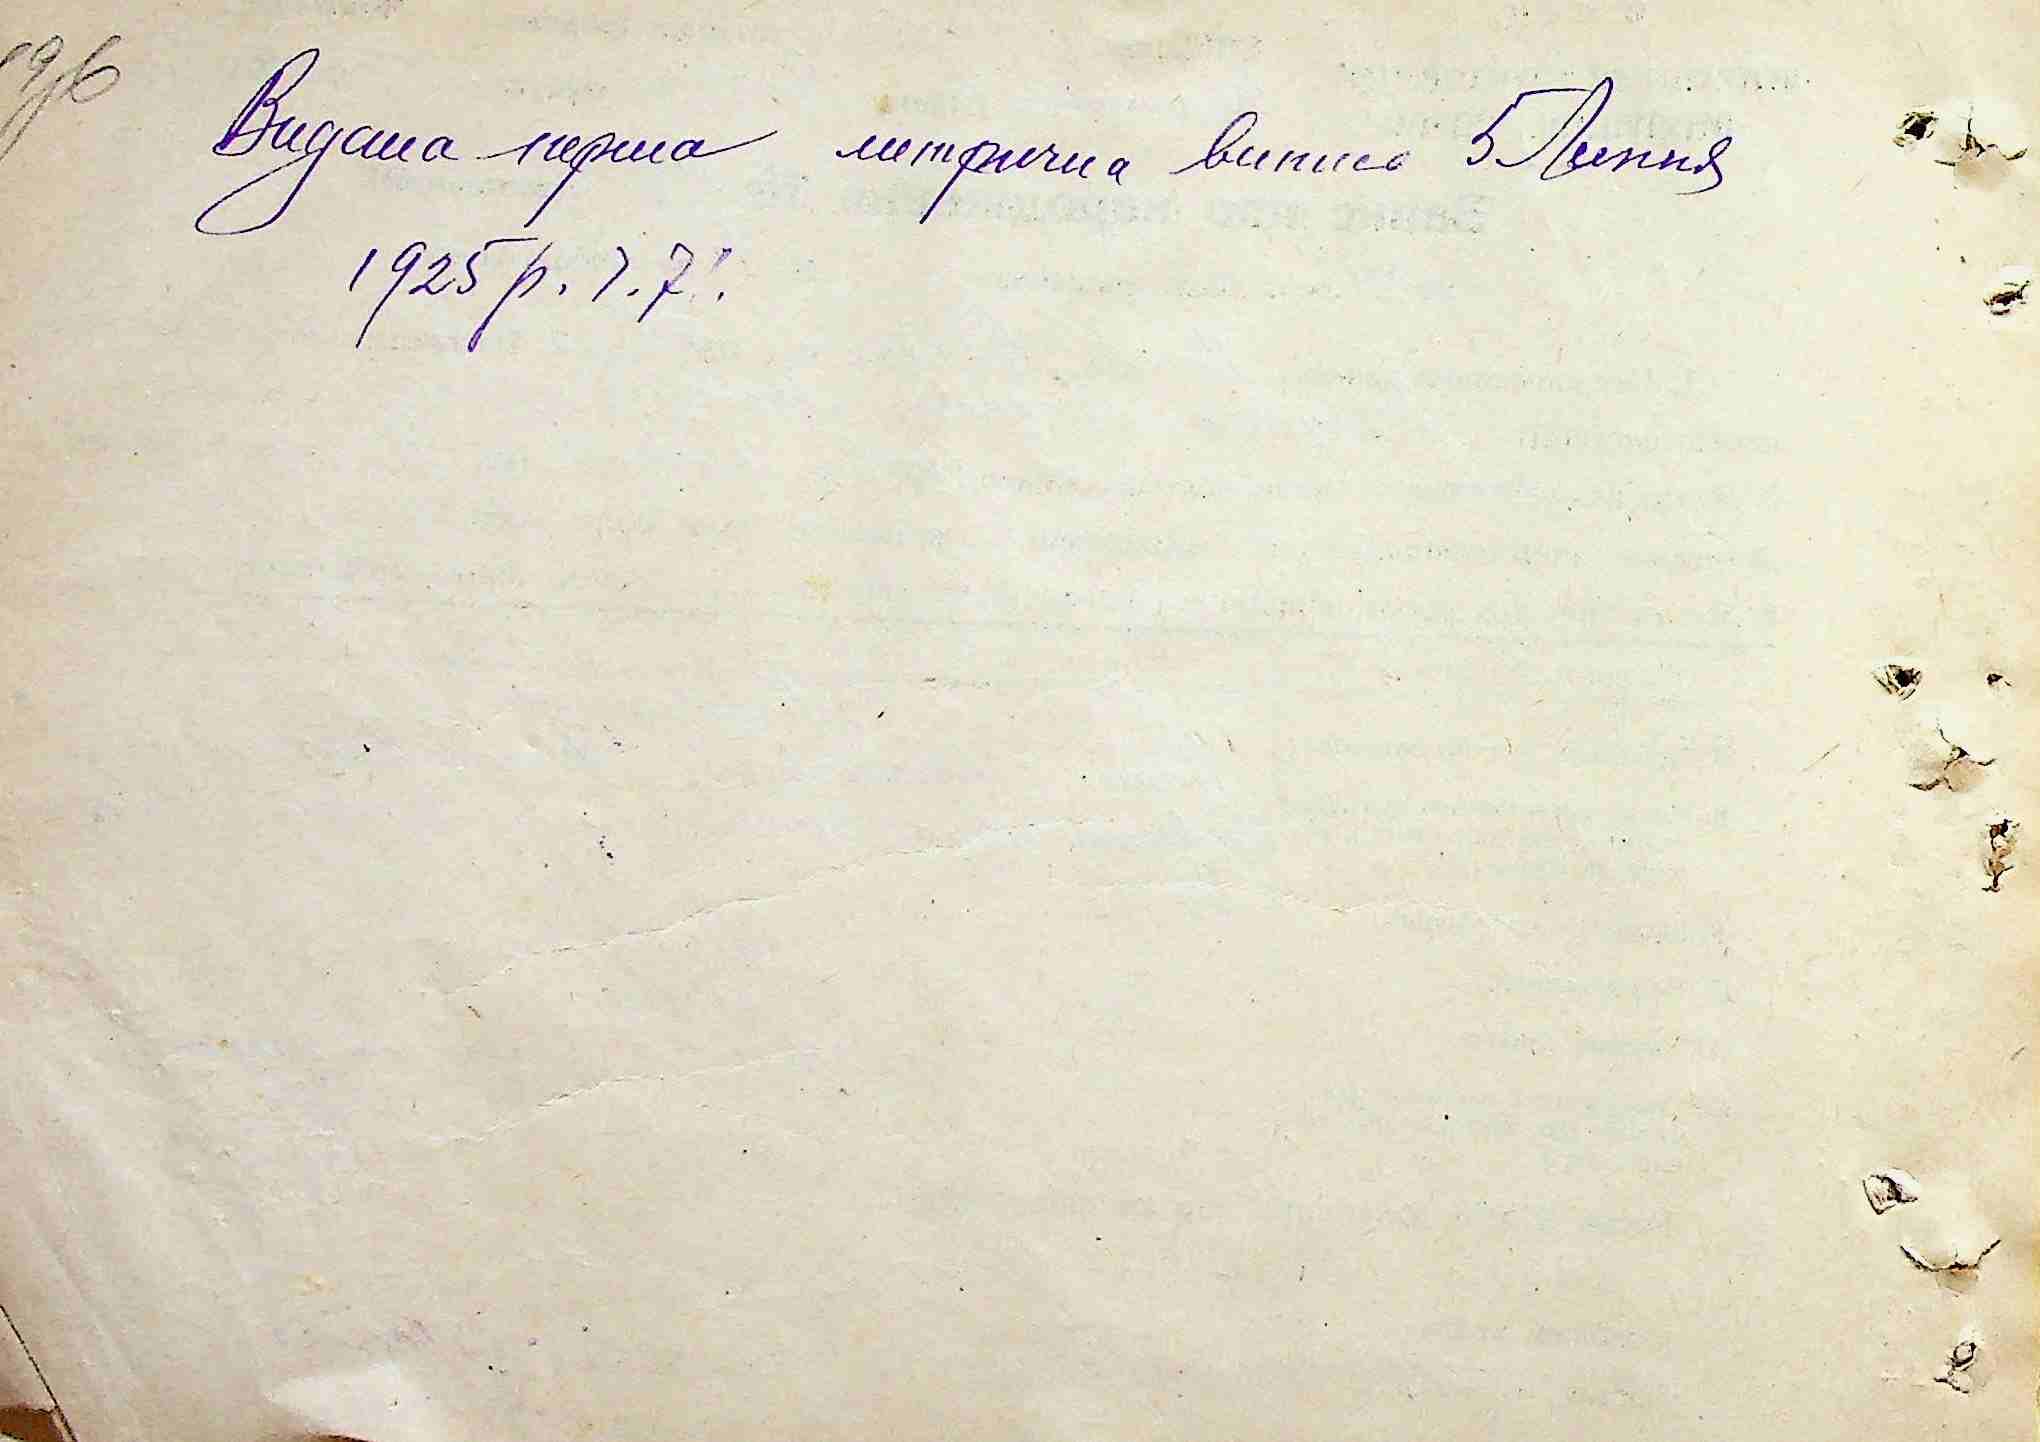 196
Видана перша метрична випись 5 Липня
1925 р.